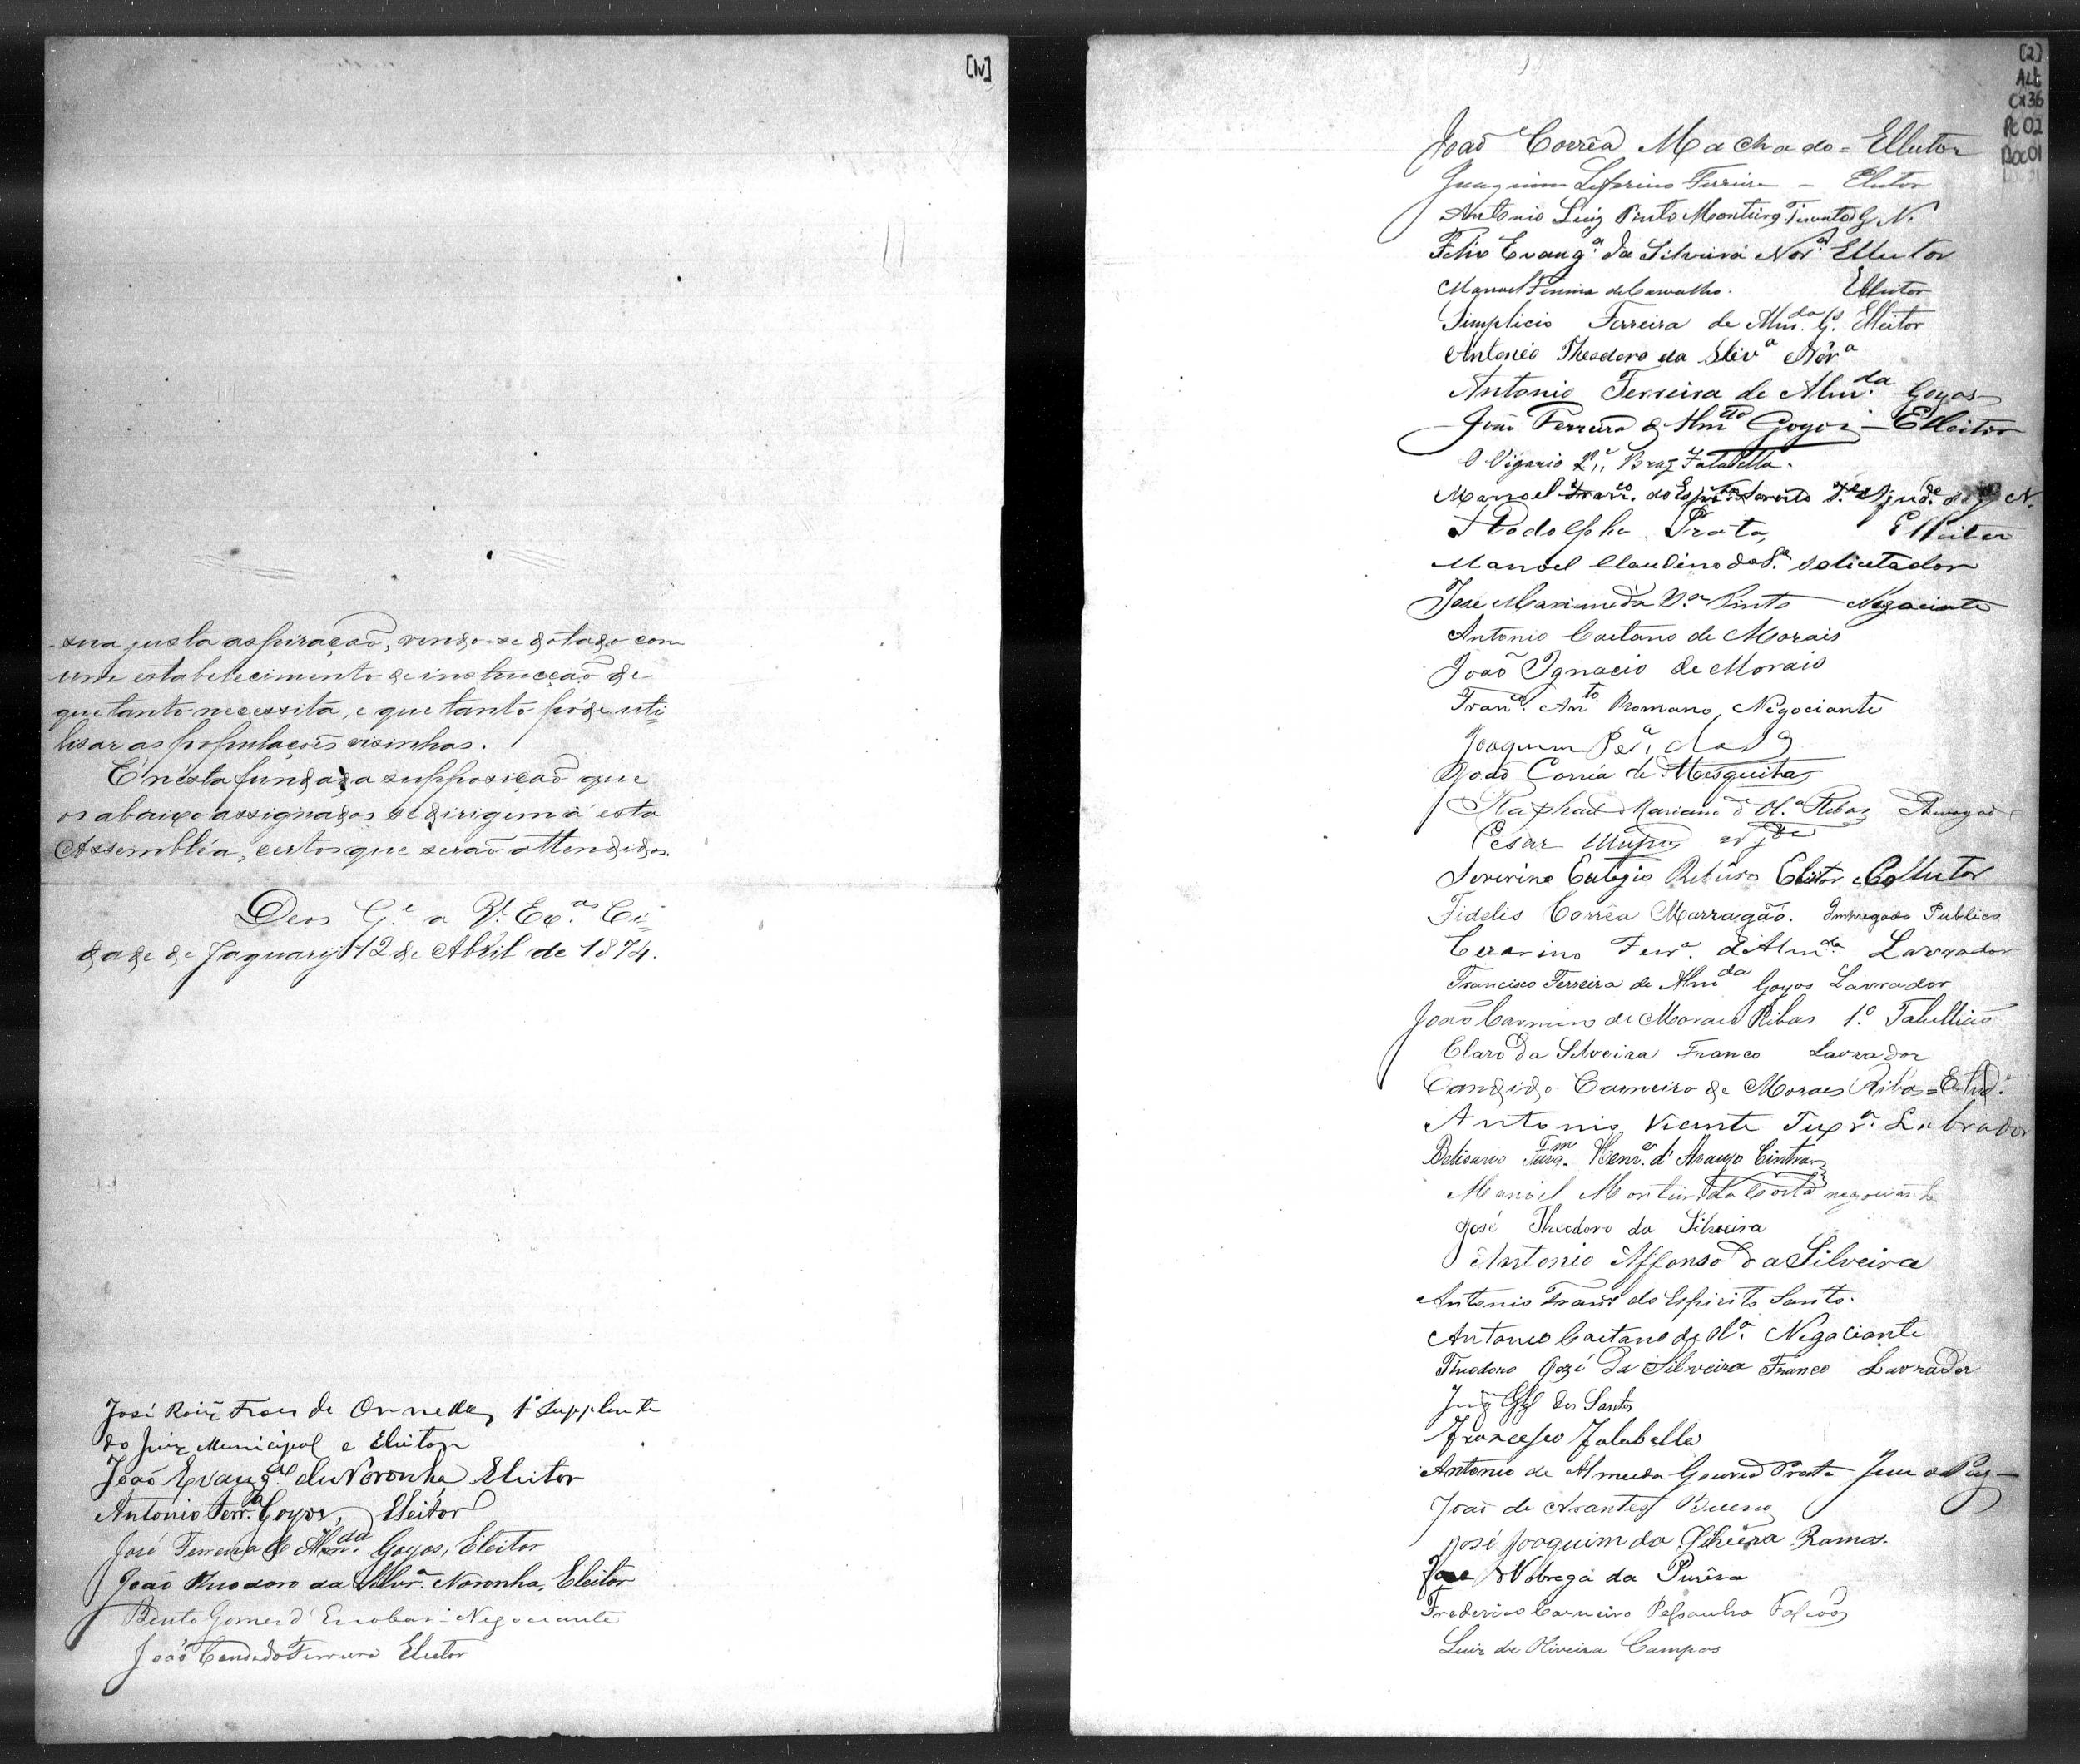 [1v]
sua justa aspiração, vendo-se dotado com
um estabelecimento de instrucção de
que tanto necessita, e que tanto póde uti=
lisar as populações visinhas.
É nésta fundada supposição que
os abaixo assignados se dirigem á esta
Assembléa, certos que serão attendidos.
Deos G.e a V.as Ex.as Ci=
dade de Jaguary 12 de Abril de 1874.
José Roiz Froes de 1º Supplente
do Juiz Municipal e Eleitor
João Evang.ta de Noronha Eleitor
Antonio Ferr.a Goyos, Eleitor
José Ferreira de Alm.da Goyos, Eleitor
João Theodoro da Silvr.a Noronha, Eleitor
Bento Gomes d'Escobar - Negociante
João Candido Ferreira Eleitor
[2]
ALt
Cx36
Pc 02
Doc 01
João Corrêa Machado = Elleitor
Joaquim Seferino Ferreira - Eleitor
Antonio Luiz Pinto Monteiro, Tenente da G. N.
Felix Evang.ta da Silveira Nor.a Elleitor
Manoel Ferreira de Carvalho. Elleitor
Simplicio Ferreira de Alm.da G.s Elleitor
Antonio Theodoro da Silv.a Nor.a
Antonio Ferreira de Alm.da Goyos
João Ferreira de Alm.da Goyos - Elleitor
O Vigario P.e Braz Falabella.
Manoel Franc.co do Espirito Santo
Rodolpho Prata, Elleitor
Manoel Claudino da S.a Solicitador
José Maria da V.a Pinto Negociante
Antonio Caetano de Morais
João Ignacio de Morais
Fran.co An.to Romano, Negociante
Joaquim Per.a da S.a
João Corrêa de Mesquita
Raphael Mariano d'Ol.a Ribas Advogado
Cesar
Severino Eulogio Ribeiro Eleitor e Collector
Fidelis Corrêa Marragão. Impregado Publico
Cezarino Ferr.a d'Alm.da Lavrador
Francisco Ferreira de Alm.da Goyos Lavrador
João Carneiro de Moraes Ribas 1.º Tabellião
Claro da Silveira Franco Lavrador
Candido Carneiro de Moraes Ribas = Estud.e
Antonio Vicente Teix.ra Labrador
Belisario Henr.es d'Araujo Cintra
Manoel Monteiro da Costa negociante
José Theodoro da Silveira
Antonio Affonso da Silveira
Antonio Franc.co do Espirito Santo.
Antonio Caetano de Ol.a Negociante
Theodoro Jozé da Silveira Franco Lavrador
dos Santos
Francesco Falabella
Antonio de Almeida Gouvea Prata Juiz de Paz
João de Arantes Bueno
José Joaquim da Silveira Ramos.
José Nobrega da Purêza
Frederico Carneiro Falcão
Luiz de Oliveira Campos